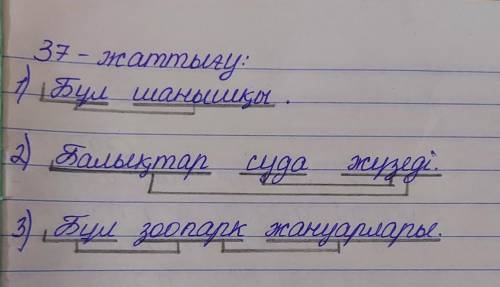 37 - жаттығу:
1) Бұл шанышқы.
2) Балықтар суда жүзеді.
3) Бұл зоопарк жануарлары.